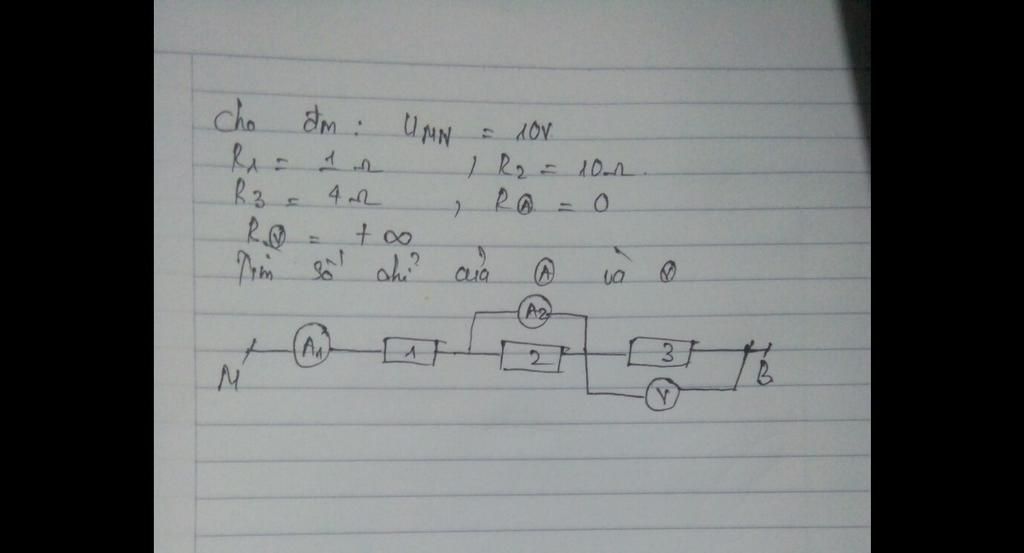 Cho đm : UMN = 10V
R1 = 1 Ω , R2 = 10Ω.
R3 = 4 Ω , RⒶ = 0
RⓋ = + ∞
Tìm số chỉ của Ⓐ và Ⓥ
A2
A1 1 2 3
M B
V